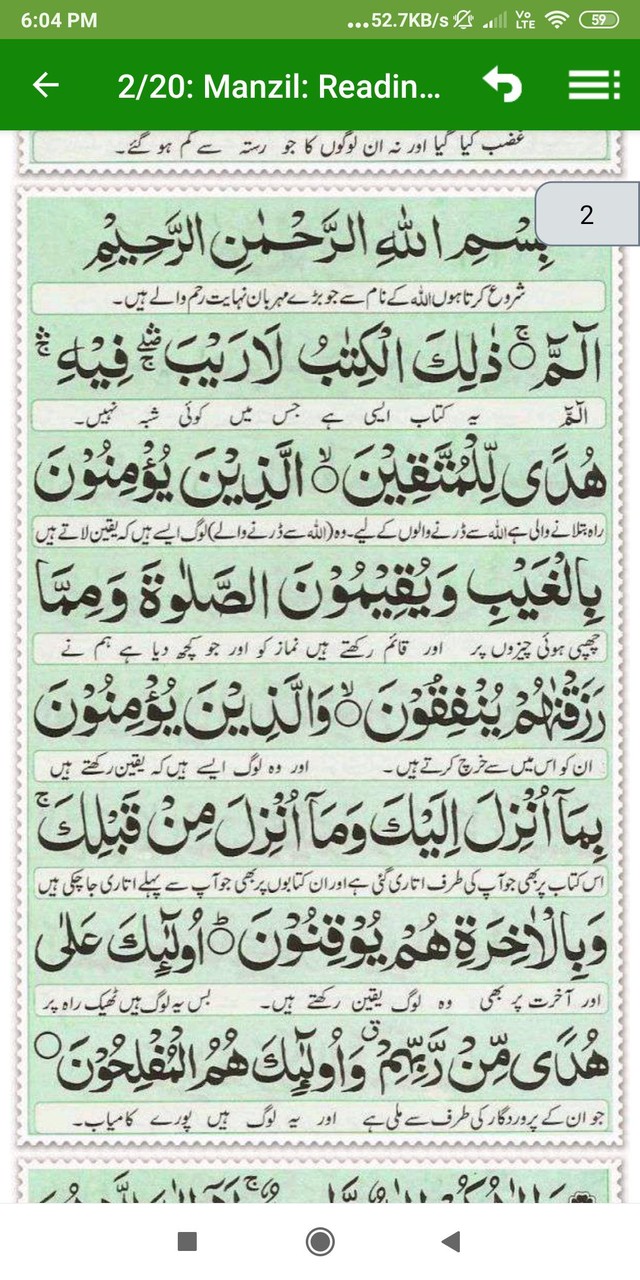 6:04 PM ...52.7KB/s Vo LTE 59
2/20: Manzil: Readin...
غضب کیا گیا اور نہ ان لوگوں کا جو رستہ سے گم ہو گئے۔
2
بِسْمِ اللهِ الرَّحْمٰنِ الرَّحِيْمِ
شروع کرتا ہوں اللہ کے نام سے جو بڑے مہربان نہایت رحم والے ہیں۔
الٓمّٓ ۚ ذٰلِكَ الْكِتٰبُ لَا رَيْبَ ۛۖۚ فِيْهِ ۛۚ
الٓمّٓ یہ کتاب ایسی ہے جس میں کوئی شبہ نہیں۔
هُدًى لِّلْمُتَّقِيْنَ ۙ الَّذِيْنَ يُؤْمِنُوْنَ
راہ بتلانے والی ہے اللہ سے ڈرنے والوں کے لیے۔ وہ (اللہ سے ڈرنے والے) لوگ ایسے ہیں کہ یقین لاتے ہیں
بِالْغَيْبِ وَيُقِيْمُوْنَ الصَّلٰوةَ وَمِمَّا
چھپی ہوئی چیزوں پر اور قائم رکھتے ہیں نماز کو اور جو کچھ دیا ہے ہم نے
رَزَقْنٰهُمْ يُنْفِقُوْنَ ۙ وَالَّذِيْنَ يُؤْمِنُوْنَ
ان کو اس میں سے خرچ کرتے ہیں۔ اور وہ لوگ ایسے ہیں کہ یقین رکھتے ہیں
بِمَآ اُنْزِلَ اِلَيْكَ وَمَآ اُنْزِلَ مِنْ قَبْلِكَ ۚ
اس کتاب پر بھی جو آپ کی طرف اتاری گئی ہے اور ان کتابوں پر بھی جو آپ سے پہلے اتاری جا چکی ہیں
وَبِالْاٰخِرَةِ هُمْ يُوْقِنُوْنَ ؕ اُولٰٓئِكَ عَلٰى
اور آخرت پر بھی وہ لوگ یقین رکھتے ہیں۔ بس یہ لوگ ہیں ٹھیک راہ پر
هُدًى مِّنْ رَّبِّهِمْ ۗ وَاُولٰٓئِكَ هُمُ الْمُفْلِحُوْنَ ۝
جو ان کے پروردگار کی طرف سے ملی ہے اور یہ لوگ ہیں پورے کامیاب۔